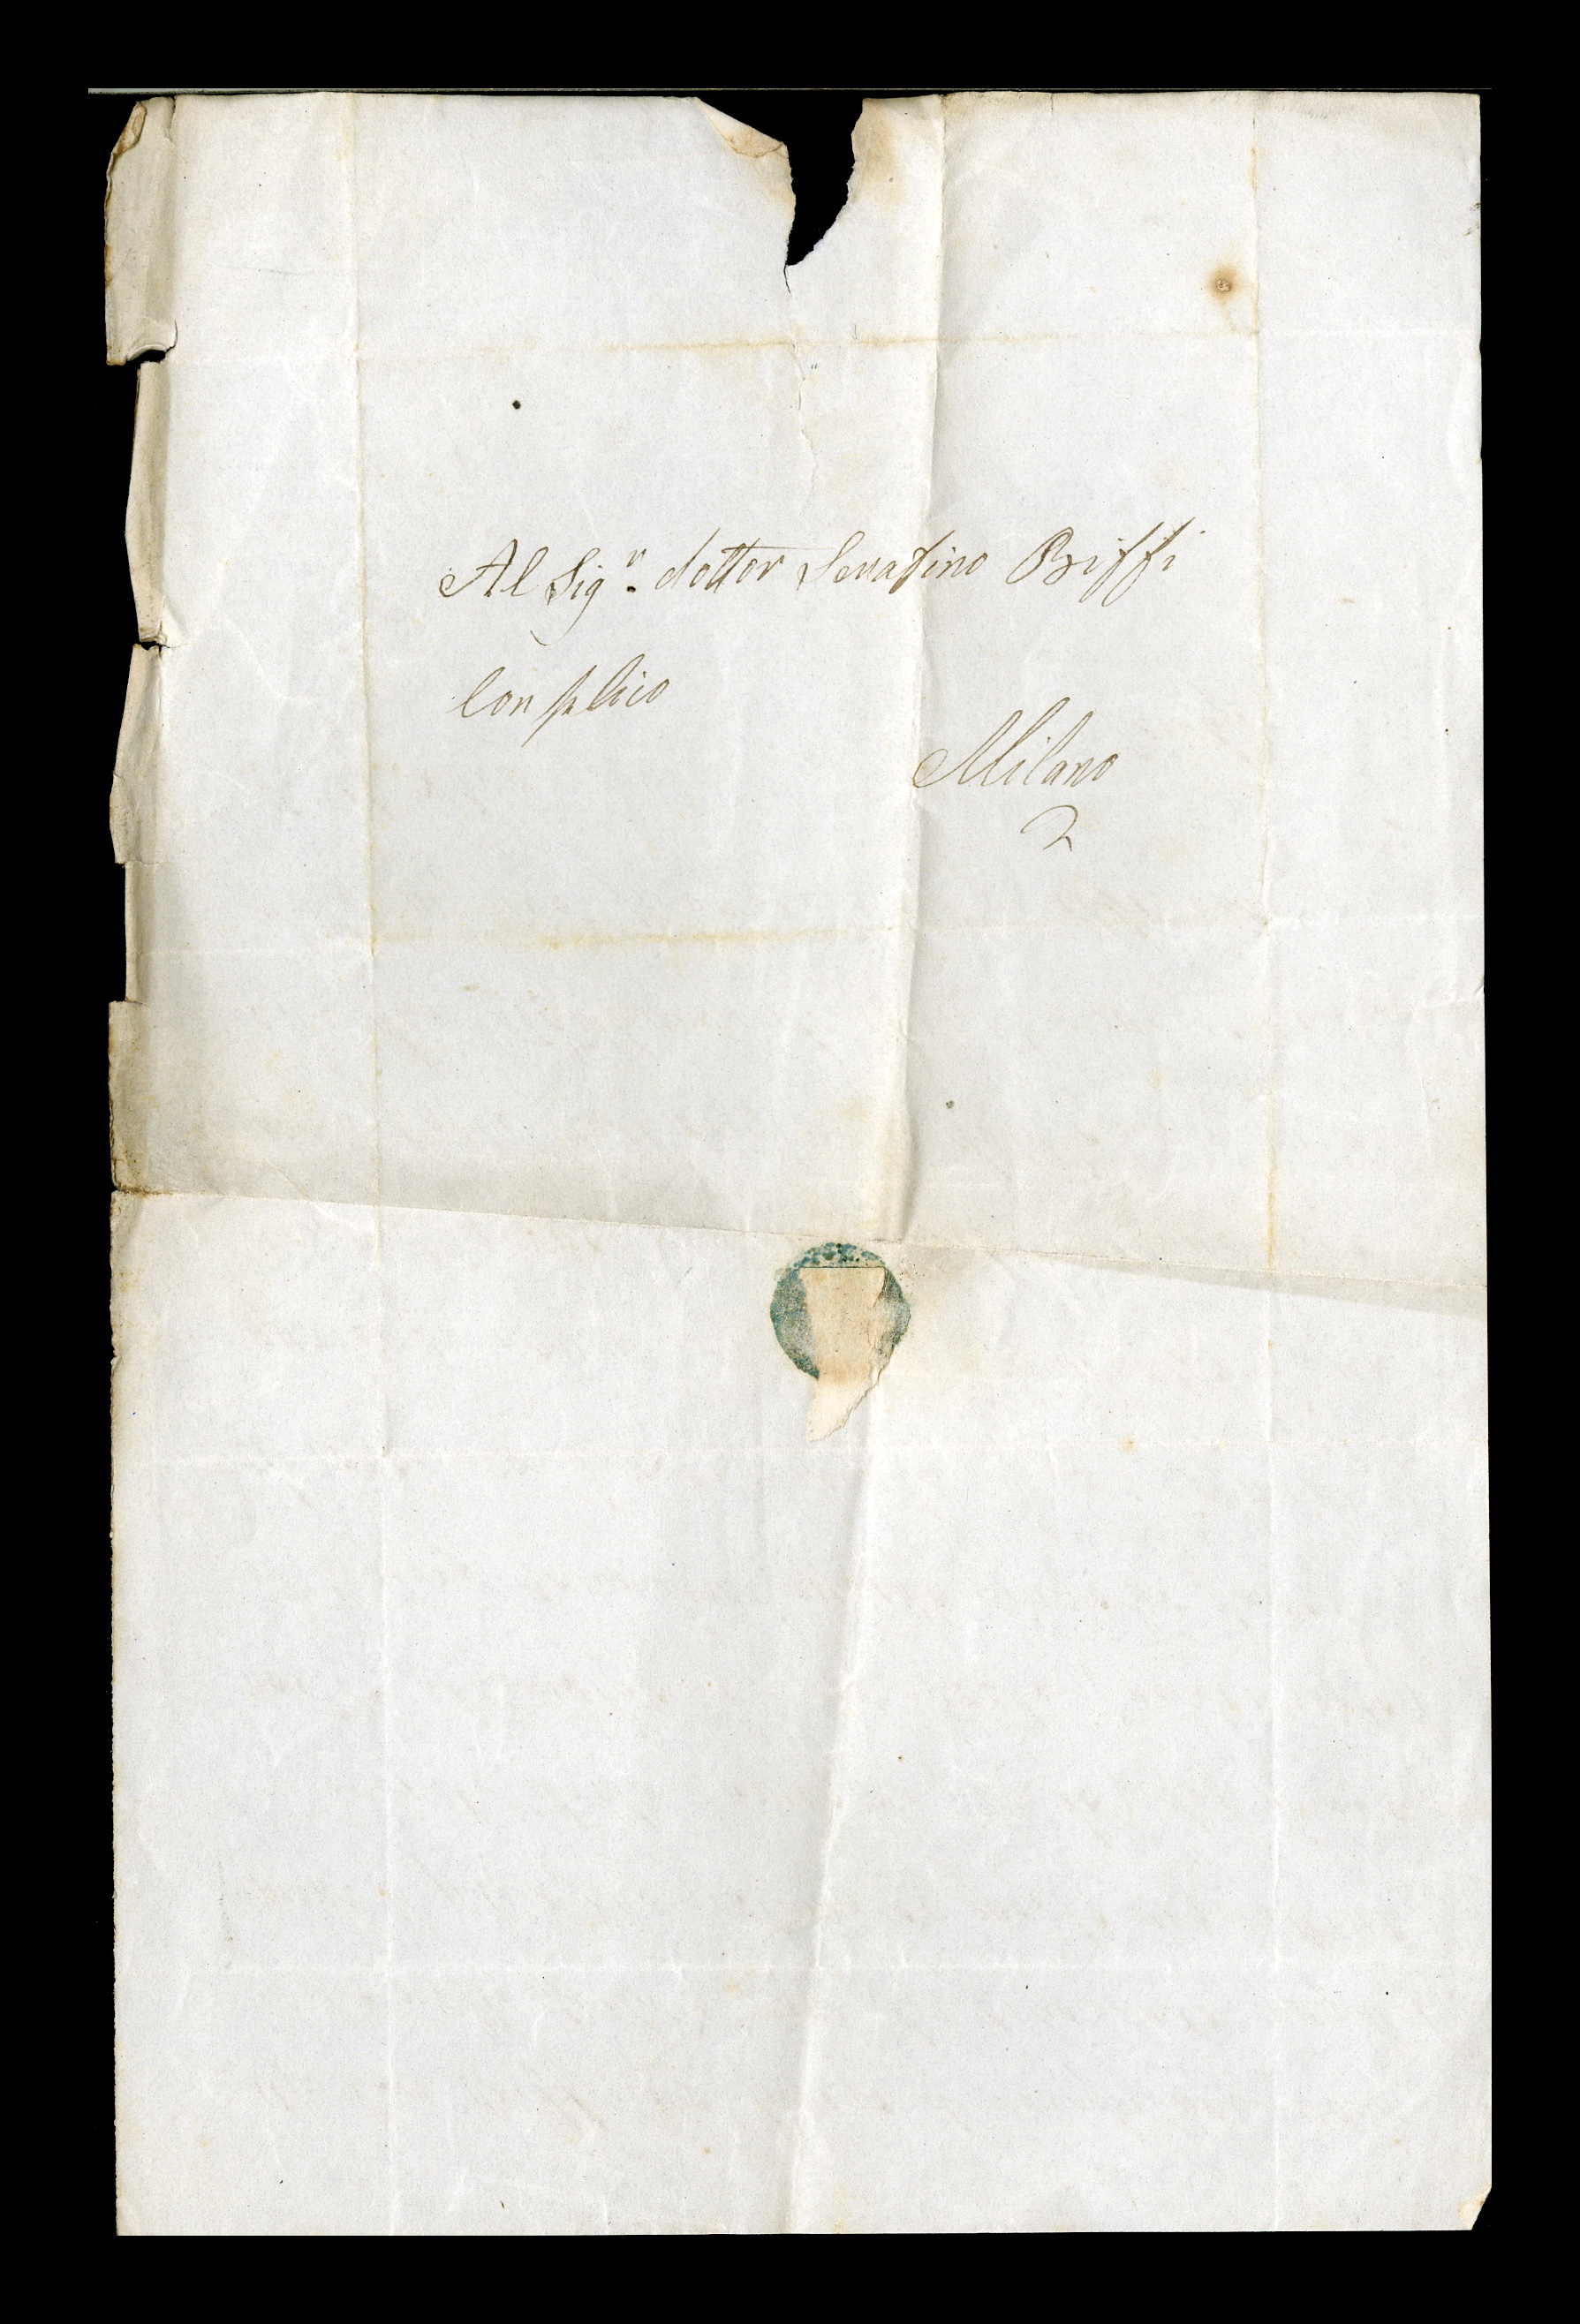 Al Sigr. dottor Serafino Biffi
Con plico
Milano